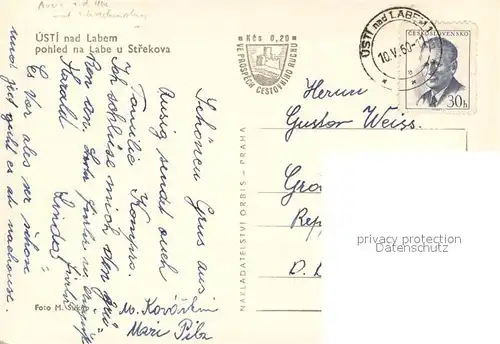 Aussig a. d. Elbe
und Schreckenstein
ÚSTÍ nad Labem
pohled na Labe u Střekova
Kčs 0,20
VE PROSPĚCH CESTOVNÍHO RUCHU
ÚSTÍ nad LABEM 1
10.V.60
ČESKOSLOVENSKO
30h
Schönen Grus aus
Aussig sendet euch
Familie
Ich schliese mich den
an.
Harald Linder
Es war ales ser schön
und jezt geht es ab nachause.
M. Kováškin
Mari Pilz
Foto M.
NAKLADATELSTVÍ ORBIS - PRAHA
Herrn
Gustor Weiss.
Gro
Rep
D.
privacy protection
Datenschutz